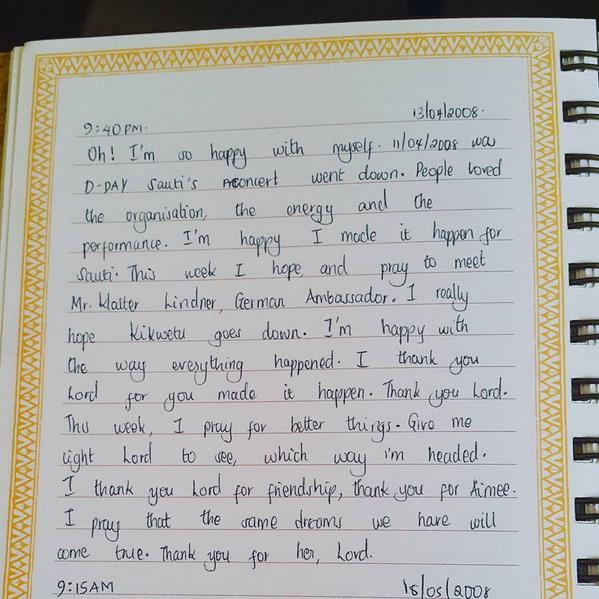 13/04/2008.
9:40PM.
Oh! I'm so happy with myself. 11/04/2008 was
D-DAY Sauti's concert went down. People loved
the organisation, the energy and the
performance. I'm happy I made it happen for
Sauti. This week I hope and pray to meet
Mr. Walter Lindner, German Ambassador. I really
hope Kikwetu goes down. I'm happy with
the way everything happened. I thank you
Lord for you made it happen. Thank you Lord.
This week, I pray for better things. Give me
light Lord to see, which way i'm headed.
I thank you Lord for friendship, thank you for Aimee.
I pray that the same dreams we have will
come true. Thank you for her, Lord.
9:15AM 18/05/2008